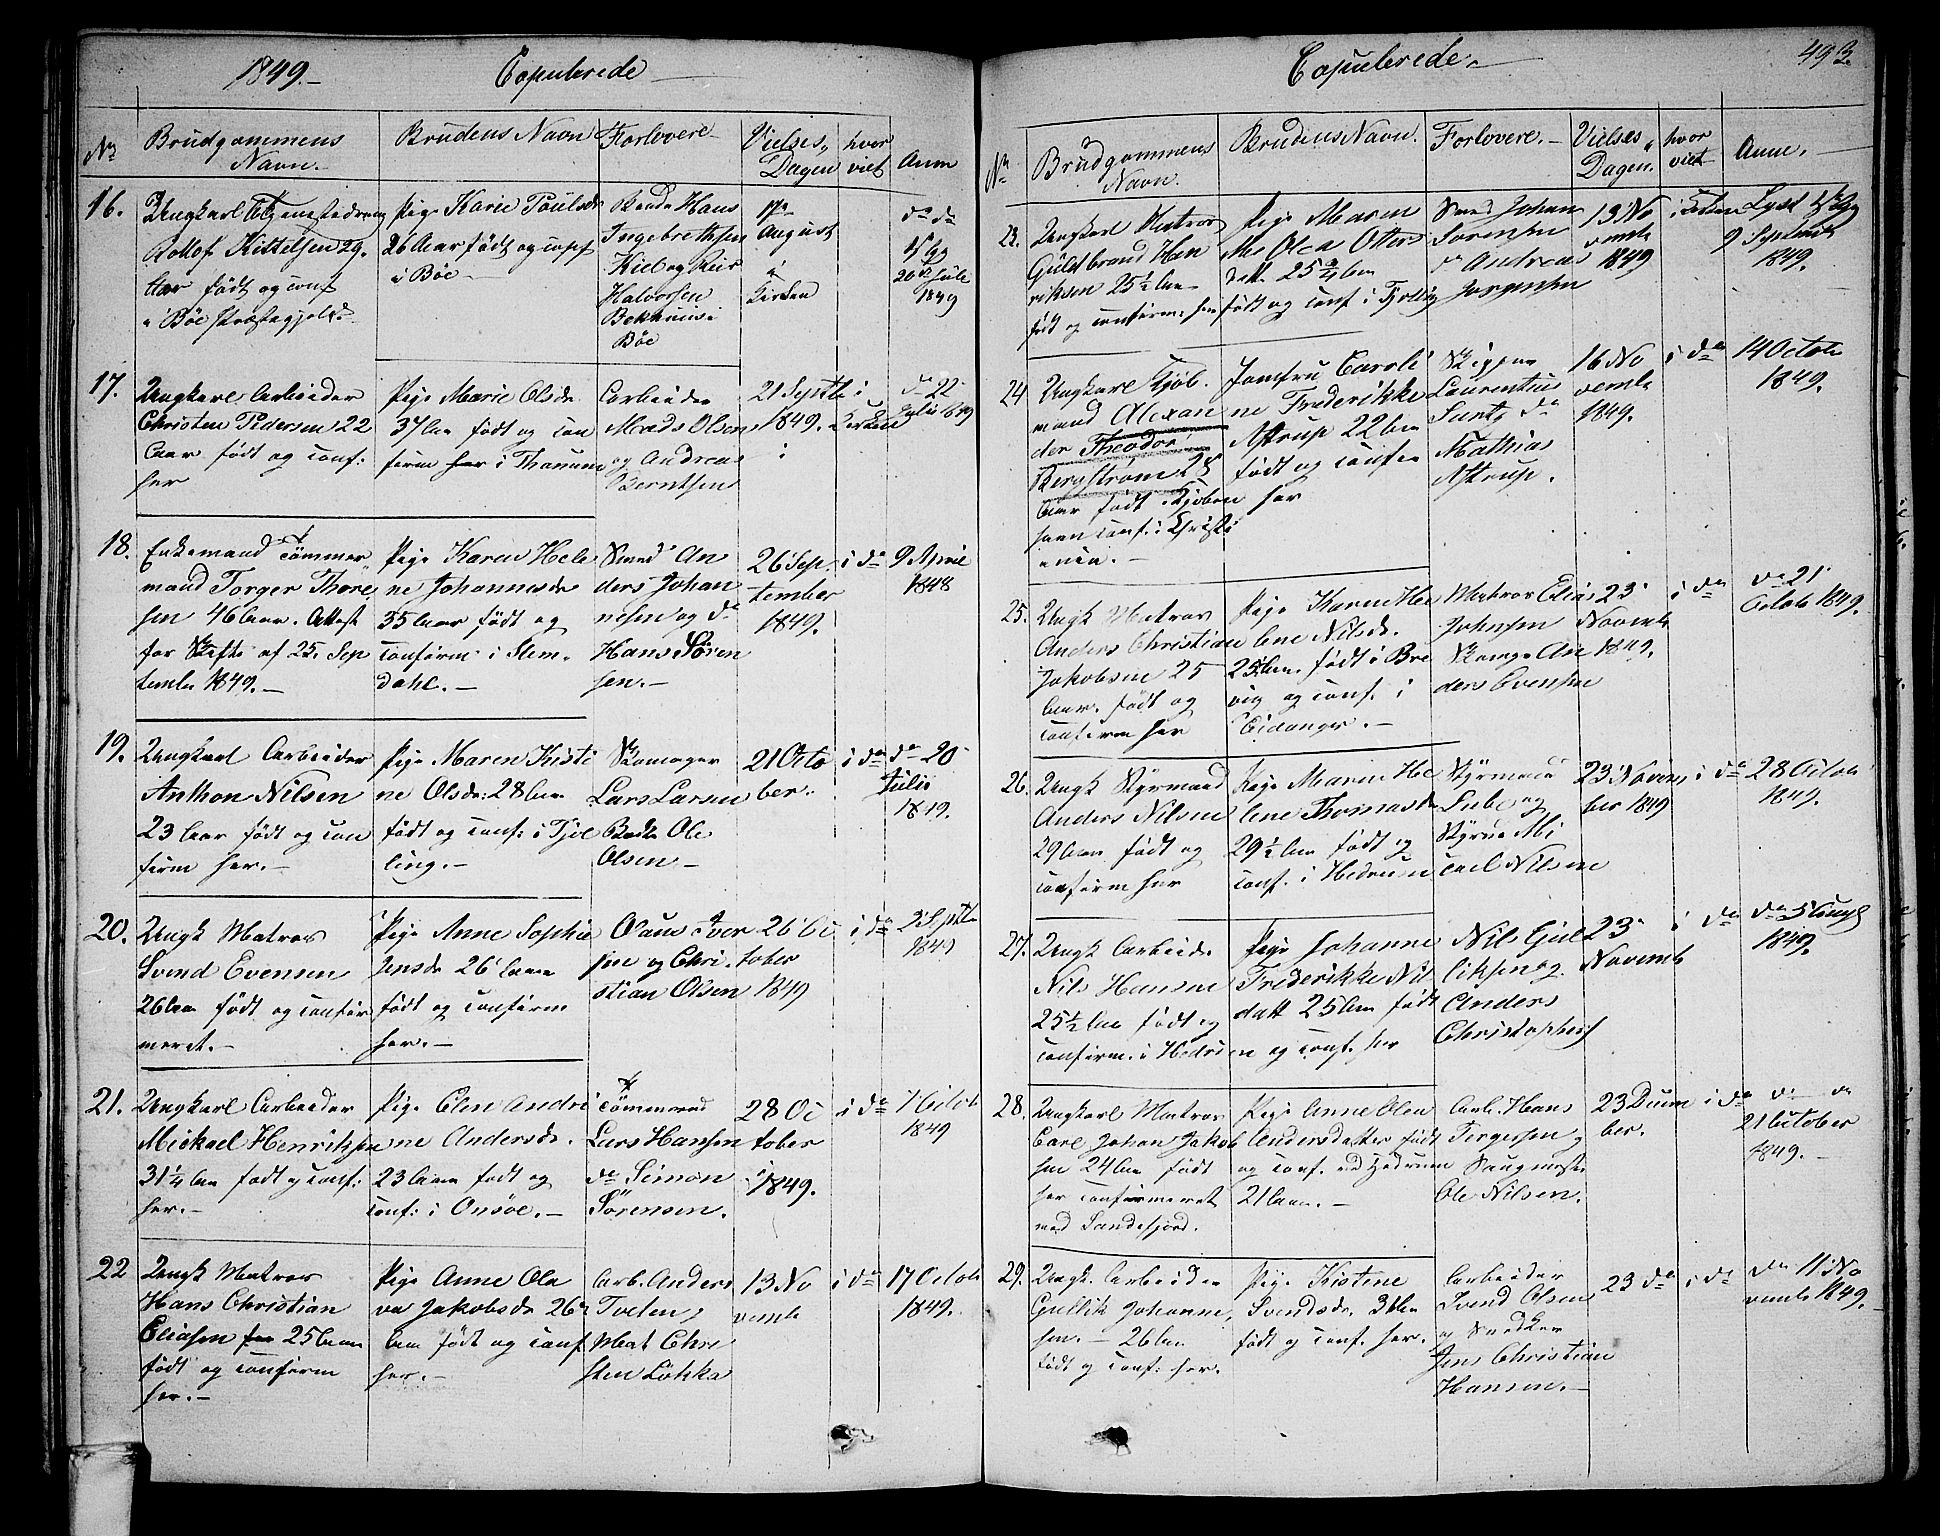 1849.- Copulerede
No Brudgommens Navn.- Brudens Navn Forlovere- Vielses, Dagen hvor viet Anm
16. Ungkarl Tjenestedreng
Rollof Kittelsen 29.
Aar født og conf
i Böe Præstegjeld.
Pige Karie Poulsd.
26 Aar født og conf
i Böe-
Bonde Hans
Ingebrethsen
Kiel og Peir
Halvorsen
i
Böe
17de
August
i
Kirken
do do
20de Juli
1849
17. Ungkarl Arbeider
Christen Pedersen 22
Aar født og conf:
her
Pige Marie Olsdr
37 Aar født og con
firm her i Thanum
Arbeider
Mads Olsen
og Andreas
Berntsen
21 Septb
1849.
i
Kirken
do 22
Julii 1849
18. Enkemand Tömmer
mand Torger Thore
sen 46 Aar. Attest
for Skifte af 25. Sep
tember 1849.-
Pige Karen Hele
ne Johannesdr
35 Aar født og
confirm i Slem-
dahl.-
Smed An
ders Johan
nesen og do
Hans Sören
sen.-
26 Sep
tember
1849.
i do
9 April
1848
19. Ungkarl Arbeider
Anthon Nilsen
23 Aar født og con
firm her.-
Pige Maren Kisti
ne Olsdr: 28 Aar
født og conf: i Tjöl
ling.-
Skomager
Lars Larsen
Ole
Olsen-
21 Octo
ber.
i do
do 20
Julii
1849.
20. Ungk Matros
Svend Evensen
26 Aar født og confir
meret.-
Pige Anne Sophie
Jensdr 26 Aar
født og confirm
her.-
Olaus Iver
sen og Chri-
stian Olsen
26 Oc
tober
1849
i do
23 Septb
1849
21. Ungkarl Arbeider
Mickael Henriksen
31 1/4 Aar født og conf:
her.-
Pige Elen Andri
ne Andersdr.
23 Aar født og
conf: i Onsöe.-
Tömmermd
Lars Hansen
do Simon
Sörensen.
28 Oc
tober
1849.
i do
7 Octob
1849
22 Ungk Matros
Hans Christian
Eliasen 25 Aar
født og confirm
her.-
Pige Anne Ola
va Jakobsdr 26
Aar født og conf
her.-
Arb. Anders
Tveten,
Mat Chri
sten Löhka
13 No
vemb
i do
17 Octob
1849.
Copulerede.- 493.
No Brudgommens Navn. Brudens Navn. Forlovere.- Vielses, Dagen. hvor viet Anm.
23. Ungkarl Matros
Guldbrand Hen
riksen 25 1/2 Aar
født og confirm: her
Pige Maren
Otters
datt. 25 3/4 Aar
født og conf: i Tjölling
Smed Johan
Sörensen
do Andreas
Jörgensen
13 No
vemb
1849
i Kirken
9 Septemb
1849.
24 Ungkarl Kjöb-
mand Alexan
der Theodor
Bergström 28
Aar født i Kjöben
havn conf: i Christi
ania.-
Jomfru Caroli
ne Frederikke
Astrup 22 Aar
født og confir
her
Skipper
Laurentius
do
Mathias
Astrup.
16 No
vemb
1849.
i do
14 Octob
1849.
25. Ungk Matros
Anders Christian
Jakobsen 25
Aar. født og
confirm her
Pige Karen He
lene Nilsdr.
25 Aar. født i Bre
vig og conf: i
Eidanger.-
Matros Elias
Johnsen
Skomgr An
ders Evensen
23
Novemb
1849.
i do
do 21
Octob 1849.
26. Ungk Styrmand
Anders Nilsen
29 Aar født og
confirm her
Pige Maren He
lene Thomasdr
29 1/2 Aar født og
conf. i Hedrum
Styrmand
og
Mi
cael Nilsen
23 Novem
ber 1849
i do
28 Octob
1849.
27. Ungk Arbeider
Nils Hansen
25 1/2 Aar født og
confirm. i Hedrum
Pige Johanne
Frederikke Nils
datt 25 Aar født
og conf. her
Nils Gul
liksen og
Anders
Christophers
23
Novemb
i do
do
1849.
28. Ungkarl Matros
Carl Johan Jakob
sen 24 Aar født
her confirmeret
ved Sandefjord.
Pige Anne Olea
Andersdatter født
og conf. ved Hedrum
21 Aar.-
Arb. Hans
Torgersen og
Ole Nilsen.
23 Decem
ber.
i do
do do
21 October
1849.-
29. Ungk. Arbeider
Gullik Johanne,
sen.- 26 Aar
født og conf: her.
Pige Kistine
Svendsdr. 31 Aar
født og conf. her.
Arbeider
Svend Olsen
og Snedker
Jens Christian
Hansen.-
23 do
i do
do 11 No
vemb 1849.